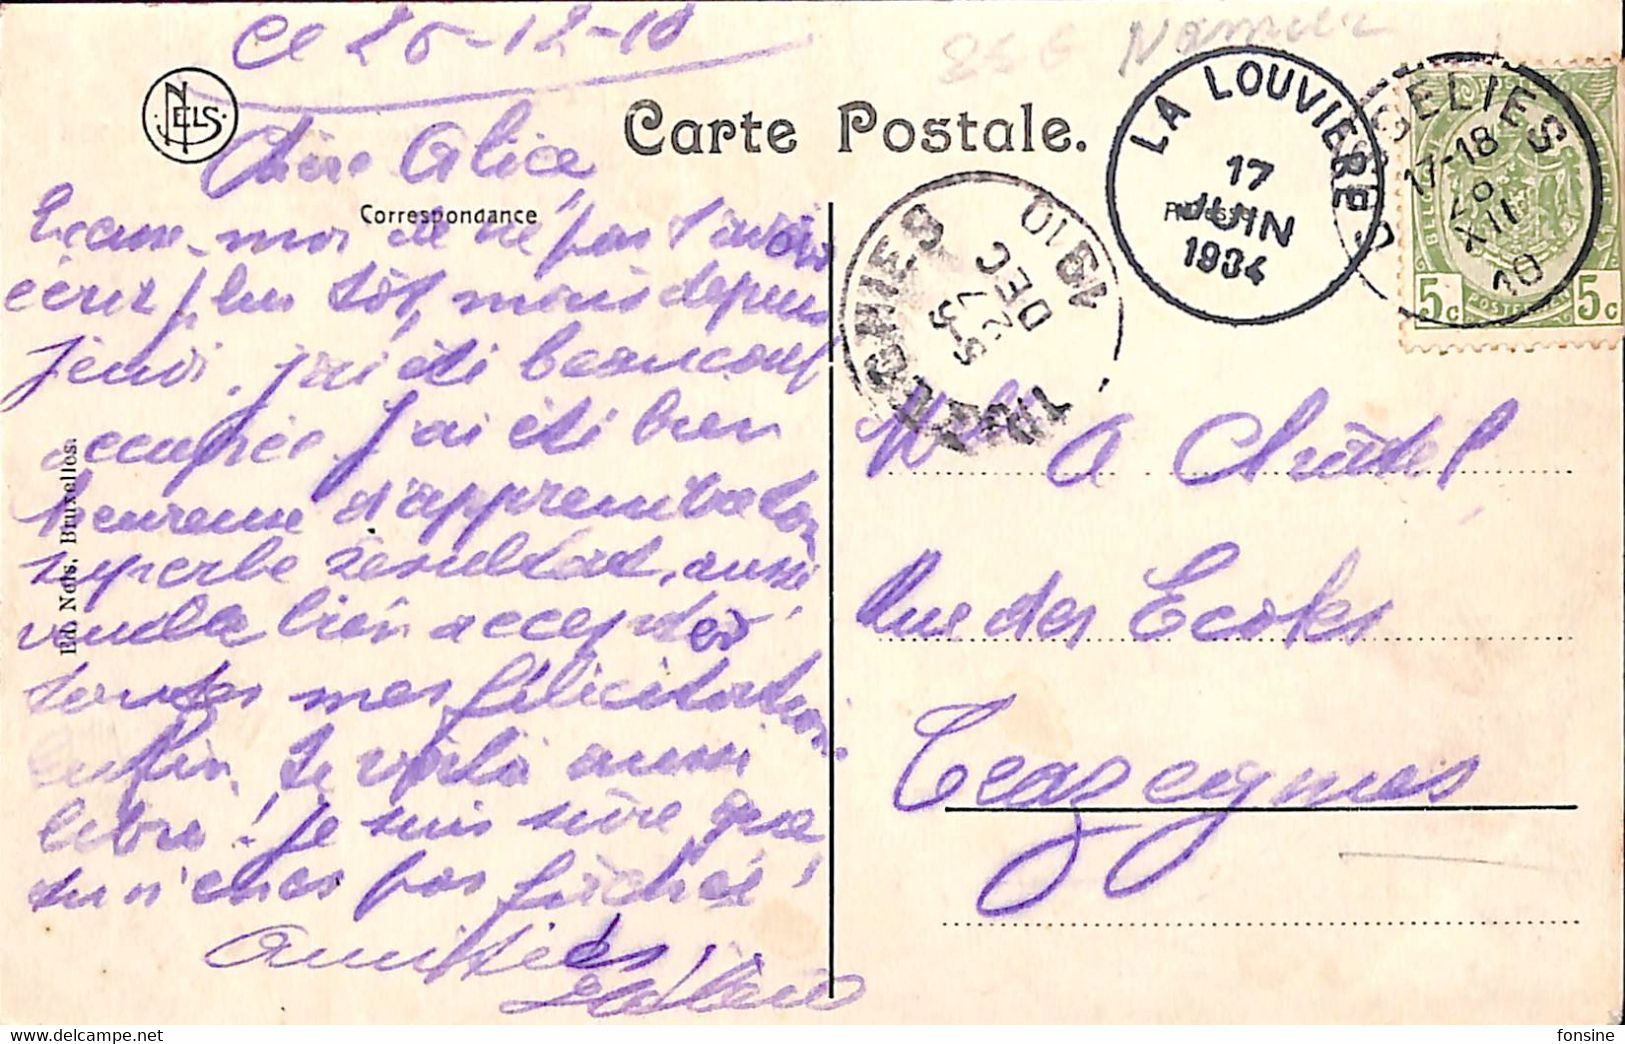 Ce 26-12-10
25 G Namur
NELS
Carte Postale.
LA LOUVIERE
17
JUIN
1934
GOSSELIES
17-18
26
XII
10
BELGIQUE
5c POSTERIJEN 5c
TRAZEGNIES
DEC
1910
Chère Alice,
Correspondance
Excuse-moi de ne pas t'avoir
écrit plus tôt, mais depuis
jeudi, j'ai été beaucoup
occupée. J'ai été bien
heureuse d'apprendre ton
superbe résultat, aussi
veuille bien accepter
toutes mes félicitations.
Enfin, te voilà aussi
libre! Je suis sûre que
tu n'en es pas fâchée!
Amitiés,
Ed. Nels, Bruxelles.
Mlle A Châtel
Rue des Ecoles
Trazegnies
fonsine